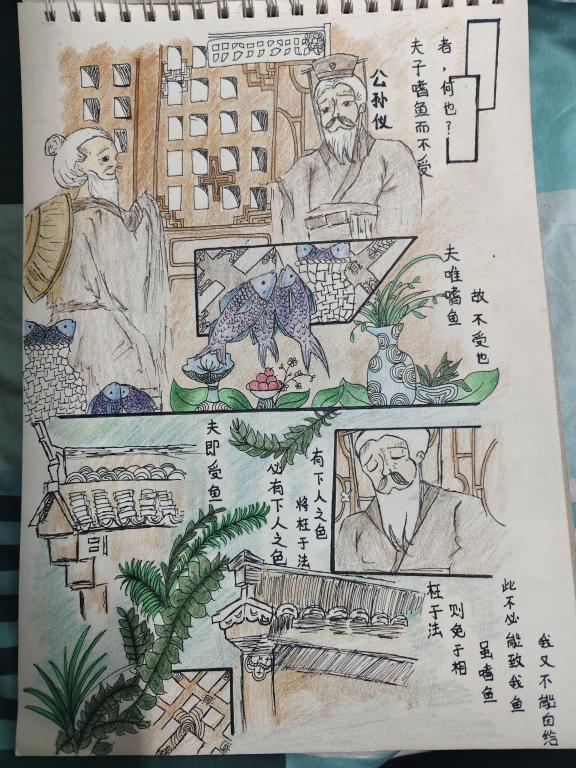 公孙仪
夫子嗜鱼而不受
者，何也？
夫唯嗜鱼
故不受也
夫即受鱼
必有下人之色
有下人之色
将枉于法
枉于法
则免于相
虽嗜鱼
此不必能致我鱼
我又不能自给